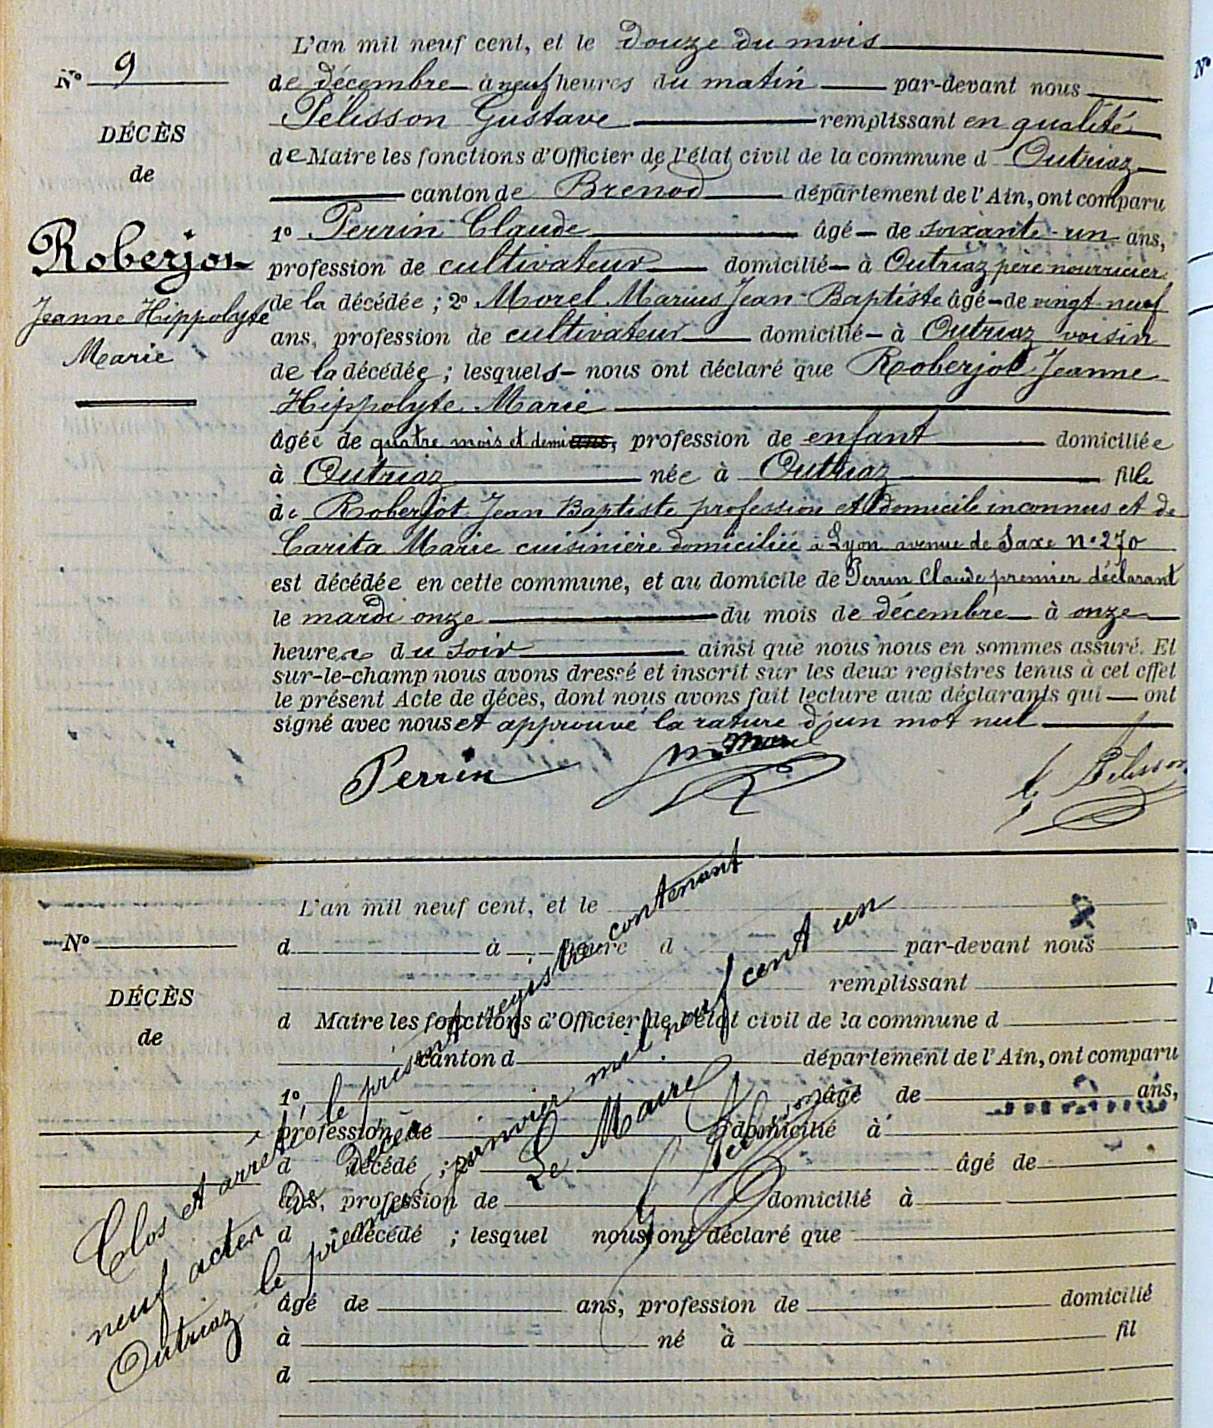 N° 9
DÉCÈS
de
Roberjon
Jeanne Hippolyte
Marie
L'an mil neuf cent, et le douze du mois
de décembre à neuf heures du matin par-devant nous
Pélisson Gustave remplissant en qualité
de Maire les fonctions d'Officier de l'état civil de la commune d Outriaz
canton de Brénod département de l'Ain, ont comparu
1° Perrin Claude âgé de soixante-un ans,
profession de cultivateur domicilié à Outriaz père nourricier
de la décédée ; 2° Morel Marius Jean-Baptiste âgé de vingt-neuf
ans, profession de cultivateur domicilié à Outriaz voisin
de la décédée ; lesquels nous ont déclaré que Roberjot Jeanne
Hippolyte Marie
âgée de quatre mois et demi ans, profession de enfant domiciliée
à Outriaz née à Outriaz fille
de Roberjot Jean Baptiste profession et domicile inconnus et de
Carita Marie cuisinière domiciliée à Lyon avenue de Saxe n° 270
est décédée en cette commune, et au domicile de Perrin Claude premier déclarant
le mardi onze du mois de décembre à onze
heures du soir ainsi que nous nous en sommes assuré. Et
sur-le-champ nous avons dressé et inscrit sur les deux registres tenus à cet effet
le présent Acte de décès, dont nous avons fait lecture aux déclarants qui ont
signé avec nous et approuvé la rature d'un mot nul
Perrin
M Morel
G Pélisson
N°
DÉCÈS
de
L'an mil neuf cent, et le
d à heure d par-devant nous
remplissant
d Maire les fonctions d'Officier de l'état civil de la commune d
canton d département de l'Ain, ont comparu
1° âgé de ans,
profession de domicilié à
d décédé ; 2° âgé de
ans, profession de domicilié à
d décédé ; lesquel nous ont déclaré que
âgé de ans, profession de domicilié
à né à fil
d
Clos et arrêté le présent registre contenant
neuf actes de décès
Outriaz le premier janvier mil neuf cent un
Le Maire
Pélisson